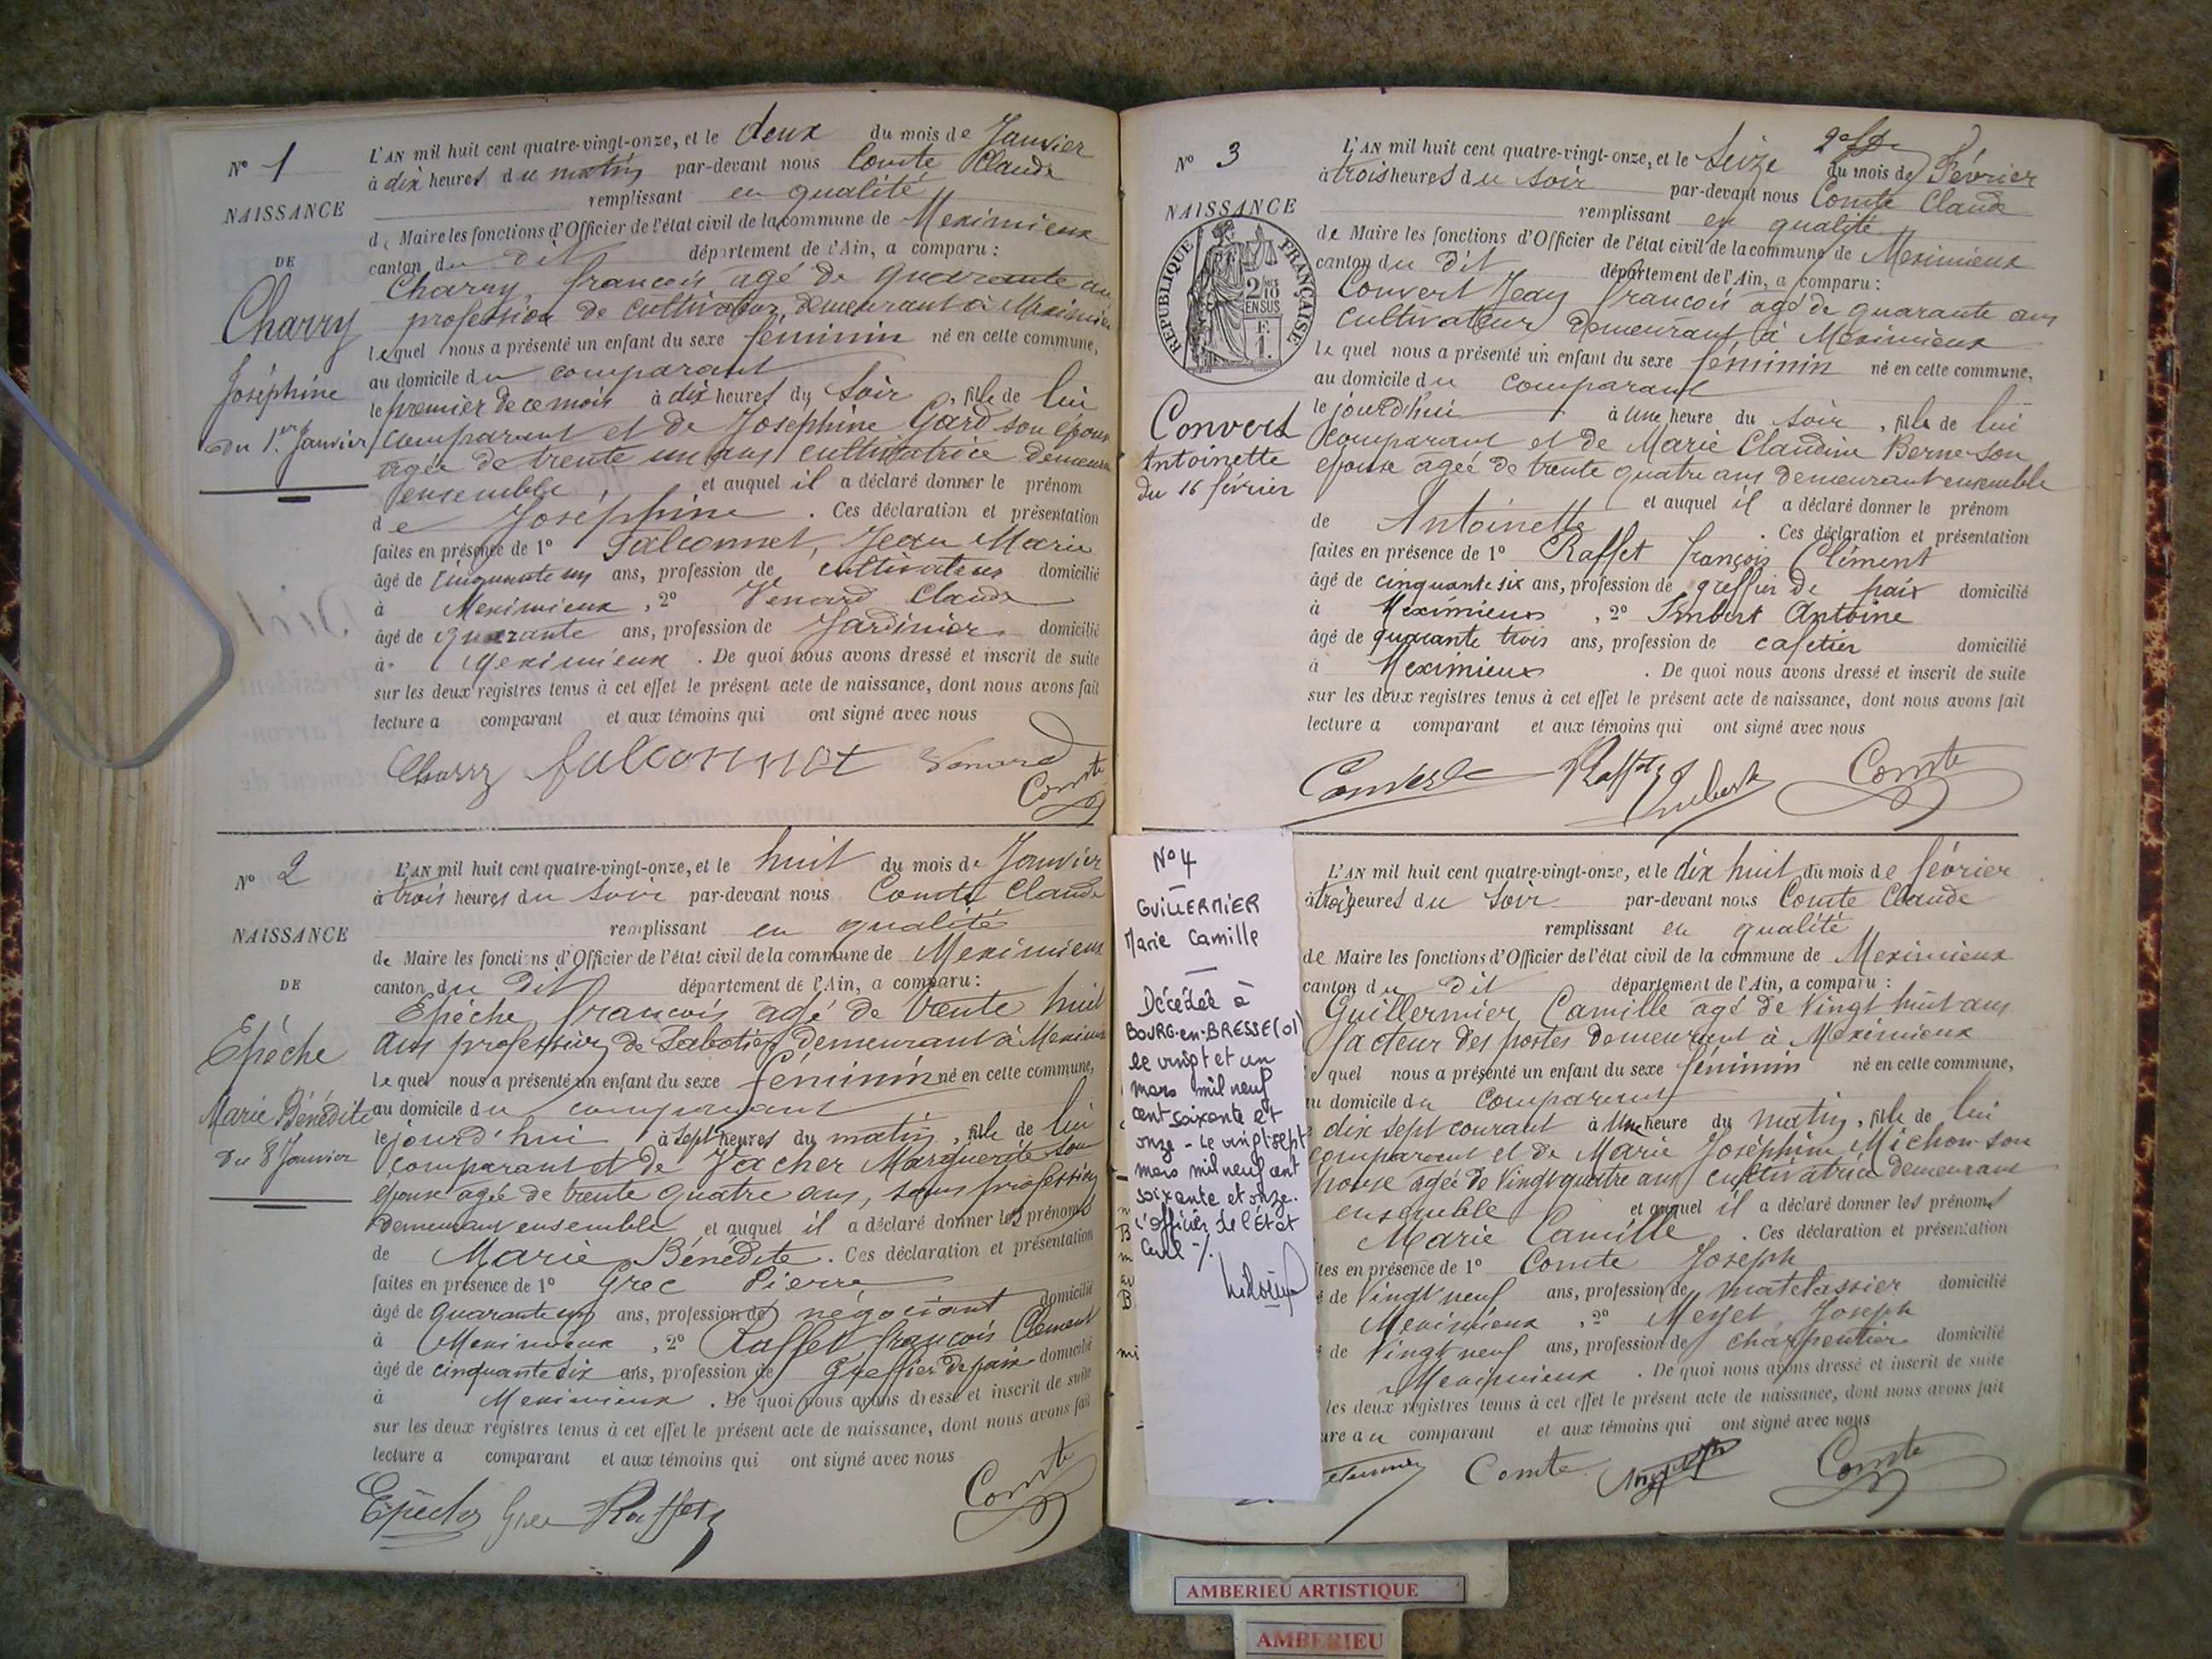 N° 1
NAISSANCE
DE
Charry
Joséphine
du 1.er Janvier
L'AN mil huit cent quatre-vingt-onze, et le deux du mois de Janvier
à dix heures du matin par-devant nous Comte Claude
remplissant en qualité
de Maire les fonctions d'Officier de l'état civil de la commune de Meximieux
canton du dit département de l'Ain, a comparu :
Charry, francois agé de quarante an
profession de cultivateur, demeurant à Meximieu
lequel nous a présenté un enfant du sexe féminin né en cette commune,
au domicile du comparant
le premier de ce mois à dix heures du soir, fille de lui
comparant et de Josephine Gard son épouse
agée de trente un ans cultivatrice demeura
ensemble, et auquel il a déclaré donner le prénom
de Joséphine. Ces déclaration et présentation
faites en présence de 1° Falconnet, Jean Marie
âgé de cinquante un ans, profession de cultivateur domicilié
à Meximieux, 2° Venard Claude
âgé de quarante ans, profession de Jardinier domicilié
à Meximieux. De quoi nous avons dressé et inscrit de suite
sur les deux registres tenus à cet effet le présent acte de naissance, dont nous avons fait
lecture a comparant et aux témoins qui ont signé avec nous
Charry falconnet Venard
Comte
N° 2
NAISSANCE
DE
Epèche
Marie Bénédite
du 8 Janvier
L'AN mil huit cent quatre-vingt-onze, et le huit du mois de Janvier
à trois heures du soir par-devant nous Comte Claude
remplissant en qualité
de Maire les fonctions d'Officier de l'état civil de la commune de Meximieux
canton du dit département de l'Ain, a comparu :
Epèche, francois agé de trente huit
ans profession de Sabotier demeurant à Meximie
lequel nous a présenté un enfant du sexe féminin né en cette commune,
au domicile du comparant
le jourd'hui à sept heures du matin, fille de lui
comparant et de Vacher Marguerite son
épouse agée de trente quatre ans, sans profession
demeurant ensemble et auquel il a déclaré donner les prénoms
de Marie Bénédite. Ces déclaration et présentation
faites en présence de 1° Grec Pierre
âgé de quarante un ans, profession de négociant domicilié
à Meximieux, 2° Raffet françois Clément
âgé de cinquante six ans, profession de Greffier de paix domicilié
à Meximieux. De quoi nous avons dressé et inscrit de suite
sur les deux registres tenus à cet effet le présent acte de naissance, dont nous avons fait
lecture a comparant et aux témoins qui ont signé avec nous
Epèche Grec Raffet
Comte
N° 3
NAISSANCE
RÉPUBLIQUE FRANÇAISE
2/10 EN SUS
1 F.
Convert
Antoinette
du 16 février
L'AN mil huit cent quatre-vingt-onze, et le seize du mois de Février
à trois heures du soir par-devant nous Comte Claude
remplissant en qualité
de Maire les fonctions d'Officier de l'état civil de la commune de Meximieux
canton du dit département de l'Ain, a comparu :
Convert Jean francois agé de quarante ans
cultivateur demeurant à Meximieux
lequel nous a présenté un enfant du sexe féminin né en cette commune,
au domicile du comparant
le jourd'hui à une heure du soir, fille de lui
comparant et de Marie Claudine Berne son
épouse agée de trente quatre ans demeurant ensemble
et auquel il a déclaré donner le prénom
de Antoinette. Ces déclaration et présentation
faites en présence de 1° Raffet françois Clément
âgé de cinquante six ans, profession de greffier de paix domicilié
à Meximieux, 2° Imbert Antoine
âgé de quarante trois ans, profession de cafetier domicilié
à Meximieux. De quoi nous avons dressé et inscrit de suite
sur les deux registres tenus à cet effet le présent acte de naissance, dont nous avons fait
lecture a comparant et aux témoins qui ont signé avec nous
Convert Raffet Imbert Comte
N° 4
GUILLERMIER
Marie Camille
Décédée à
BOURG-en-BRESSE (01)
le vingt et un
mars mil neuf
cent soixante et
onze - Le vingt sept
mars mil neuf cent
soixante et onze.
L'officier de l'État
Civil -/.
L'AN mil huit cent quatre-vingt-onze, et le dix huit du mois de février
à trois heures du soir par-devant nous Comte Claude
remplissant en qualité
de Maire les fonctions d'Officier de l'état civil de la commune de Meximieux
canton du dit département de l'Ain, a comparu :
Guillermier, Camille agé de vingt huit ans
facteur des postes demeurant à Meximieux
e quel nous a présenté un enfant du sexe féminin né en cette commune,
au domicile du comparant
dix sept courant à une heure du matin, fille de lui
comparant et de Marie Joséphine Michon son
épouse agée de vingt quatre ans cultivatrice demeurant
ensemble et auquel il a déclaré donner les prénoms
Marie Camille. Ces déclaration et présentation
ites en présence de 1° Comte Joseph
é de vingt neuf ans, profession de matelassier domicilié
Meximieux, 2° Meyet Joseph
é de vingt neuf ans, profession de charpentier domicilié
Meximieux. De quoi nous avons dressé et inscrit de suite
les deux registres tenus à cet effet le présent acte de naissance, dont nous avons fait
ure au comparant et aux témoins qui ont signé avec nous
Comte Comte
AMBERIEU ARTISTIQUE
AMBERIEU